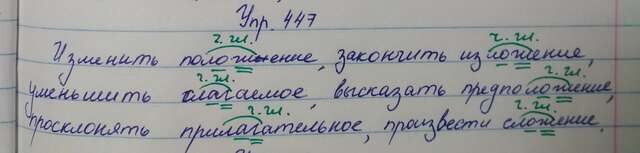 Упр. 447
ч. гл. ч. гл.
Изменить положение, закончить изложение,
ч. гл. ч. гл.
уменьшить слагаемое, высказать предположение,
ч. гл. ч. гл.
просклонять прилагательное, произвести сложение.